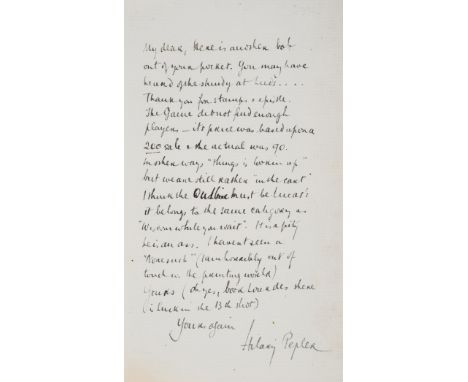 My dear, there is another bob
out of your pocket. You may have
heard of the shindy at Lee's....
Thank you for stamps & epistle.
The Game did not find enough
players — its price was based upon a
200 sale & the actual was 90.
In other ways "things is lookin up"
but we are still rather "in the cart"
I think the Outline must be Lucas's
it belongs to the same category as
"Wisdom while you wait". It is a pity
he is an ass. I haven't seen a
"Nonesuch" (I am horribly out of
touch in the printing world)
Yours (oh yes, book
(i luck in the 13th shot)
Yours again
Hilary Pepler